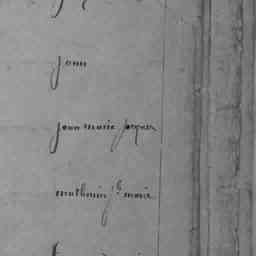 jean
jean marie jacques
mathurin jh marie